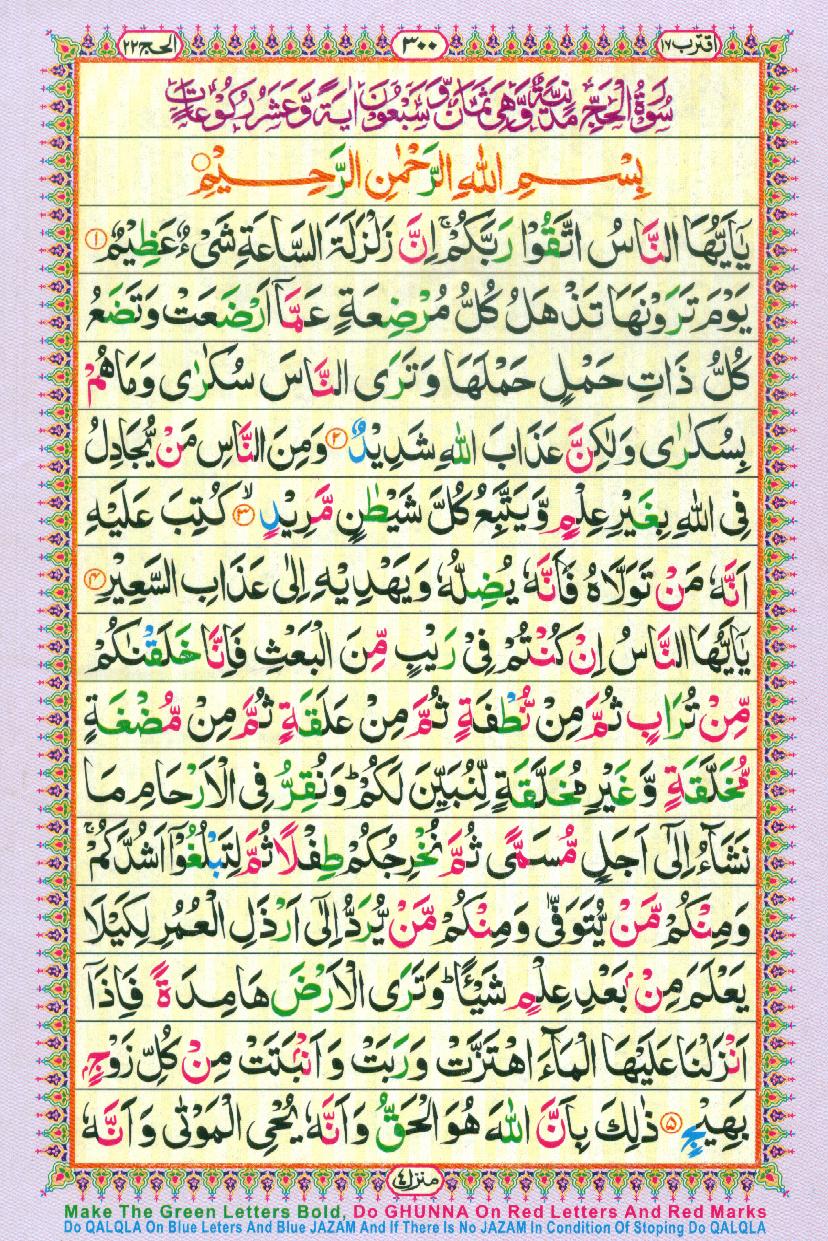 اقترب ١٧
٣٠٠
الحج ٢٢
سُوْرَةُ الْحَجِّ مَدَنِيَّةٌ وَّهِیَ ثَمَانٌ وَّسَبْعُوْنَ اٰيَةً وَّعَشْرُ رُكُوْعَاتٍ
بِسْمِ اللّٰهِ الرَّحْمٰنِ الرَّحِيْمِ○
يٰۤاَيُّهَا النَّاسُ اتَّقُوْا رَبَّكُمْ ۚ اِنَّ زَلْزَلَةَ السَّاعَةِ شَیْءٌ عَظِيْمٌ ①
يَوْمَ تَرَوْنَهَا تَذْهَلُ كُلُّ مُرْضِعَةٍ عَمَّاۤ اَرْضَعَتْ وَتَضَعُ
كُلُّ ذَاتِ حَمْلٍ حَمْلَهَا وَتَرَی النَّاسَ سُكٰرٰی وَمَا هُمْ
بِسُكٰرٰی وَلٰكِنَّ عَذَابَ اللّٰهِ شَدِيْدٌ ② وَمِنَ النَّاسِ مَنْ يُّجَادِلُ
فِی اللّٰهِ بِغَيْرِ عِلْمٍ وَّيَتَّبِعُ كُلَّ شَيْطٰنٍ مَّرِيْدٍ ۙ③ كُتِبَ عَلَيْهِ
اَنَّهٗ مَنْ تَوَلَّاهُ فَاَنَّهٗ يُضِلُّهٗ وَيَهْدِيْهِ اِلٰی عَذَابِ السَّعِيْرِ ④
يٰۤاَيُّهَا النَّاسُ اِنْ كُنْتُمْ فِیْ رَيْبٍ مِّنَ الْبَعْثِ فَاِنَّا خَلَقْنٰكُمْ
مِّنْ تُرَابٍ ثُمَّ مِنْ نُّطْفَةٍ ثُمَّ مِنْ عَلَقَةٍ ثُمَّ مِنْ مُّضْغَةٍ
مُّخَلَّقَةٍ وَّغَيْرِ مُخَلَّقَةٍ لِّنُبَيِّنَ لَكُمْ ؕ وَنُقِرُّ فِی الْاَرْحَامِ مَا
نَشَآءُ اِلٰۤی اَجَلٍ مُّسَمًّی ثُمَّ نُخْرِجُكُمْ طِفْلًا ثُمَّ لِتَبْلُغُوْۤا اَشُدَّكُمْ ۚ
وَمِنْكُمْ مَّنْ يُّتَوَفّٰی وَمِنْكُمْ مَّنْ يُّرَدُّ اِلٰۤی اَرْذَلِ الْعُمُرِ لِكَيْلَا
يَعْلَمَ مِنْۢ بَعْدِ عِلْمٍ شَيْئًا ؕ وَتَرَی الْاَرْضَ هَامِدَةً فَاِذَاۤ
اَنْزَلْنَا عَلَيْهَا الْمَآءَ اهْتَزَّتْ وَرَبَتْ وَاَنْۢبَتَتْ مِنْ كُلِّ زَوْجٍۭ
بَهِيْجٍ ⑤ ذٰلِكَ بِاَنَّ اللّٰهَ هُوَ الْحَقُّ وَاَنَّهٗ يُحْیِ الْمَوْتٰی وَاَنَّهٗ
منزل ٤
Make The Green Letters Bold, Do GHUNNA On Red Letters And Red Marks
Do QALQLA On Blue Leters And Blue JAZAM And If There Is No JAZAM In Condition Of Stoping Do QALQLA